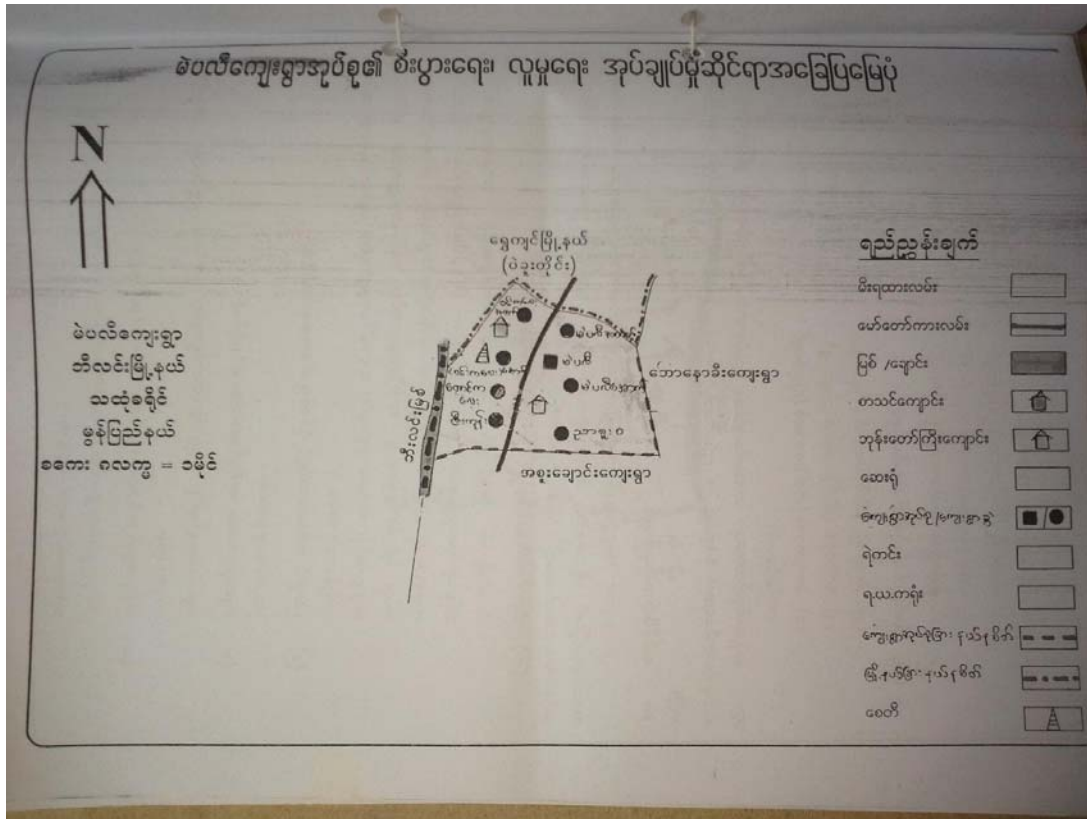 မဲပလီကျေးရွာအုပ်စု၏ စီးပွားရေး၊ လူမှုရေး အုပ်ချုပ်မှုဆိုင်ရာအခြေပြမြေပုံ
N
မဲပလီကျေးရွာ
ဘီလင်းမြို့နယ်
သထုံခရိုင်
မွန်ပြည်နယ်
စကေး ၈လက္မ = ၁မိုင်
ရွှေကျင်မြို့နယ်
(ပဲခူးတိုင်း)
မဲပလီ
ညာစူး ဝ
ဘီးလင်းမြစ်
ဘောနောခီးကျေးရွာ
အစူးချောင်းကျေးရွာ
ရည်ညွှန်းချက်
မီးရထားလမ်း
မော်တော်ကားလမ်း
မြစ် /ချောင်း
စာသင်ကျောင်း
ဘုန်းတော်ကြီးကျောင်း
ဆေးရုံ
ကျေးရွာအုပ်စု/ကျေးရွာ
ရဲကင်း
ရ.ယ.ကရုံး
ကျေးရွာအုပ်စုခြားနယ်နမိတ်
မြို့နယ်ခြားနယ်နမိတ်
စေတီ